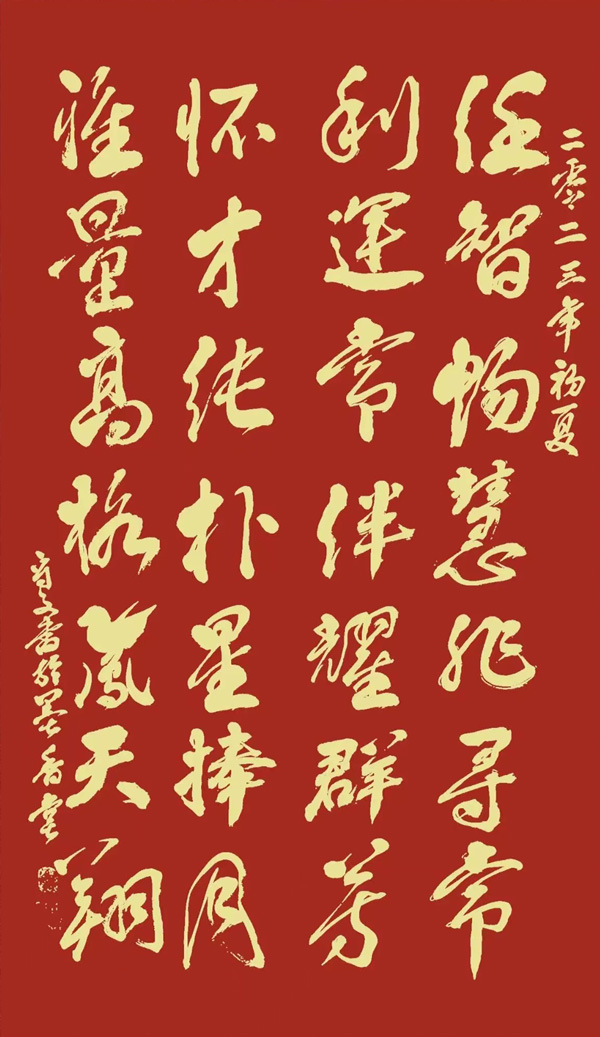 二零二三年初夏
任智畅慧非寻常
利運常伴耀群芳
怀才纯朴星捧月
雅量高格鳳天翔
肖文於墨香堂